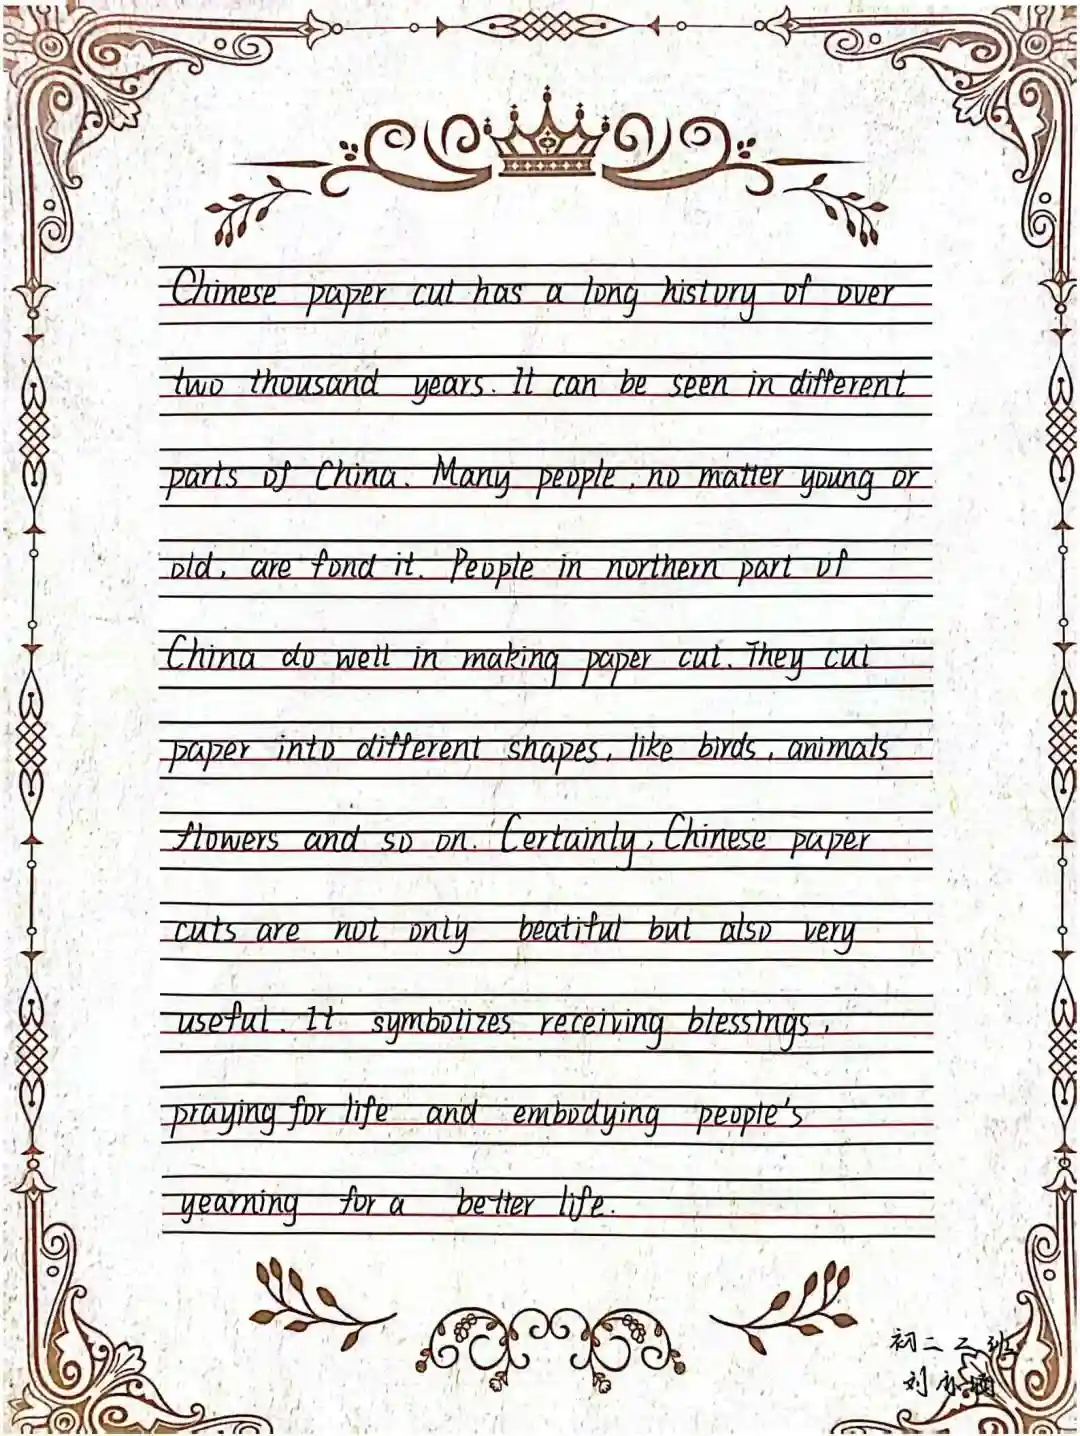 Chinese paper cut has a long history of over
two thousand years. It can be seen in different
parts of China. Many people, no matter young or
old, are fond it. People in northern part of
China do well in making paper cut. They cut
paper into different shapes, like birds, animals
flowers and so on. Certainly, Chinese paper
cuts are not only beatiful but also very
useful. It symbolizes receiving blessings,
praying for life and embodying people's
yearning for a better life.
初二二班
刘